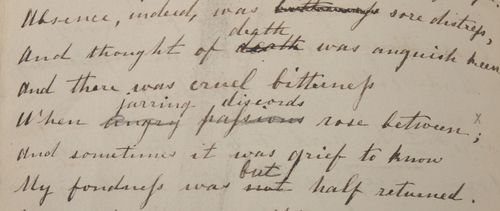 Absence, indeed, was bitterness sore distress,
death
And thought of death was anguish keen
And there was cruel bitterness
jarring discords
When angry passions rose between; x
And sometimes it was grief to know
but
My fondness was not half returned.